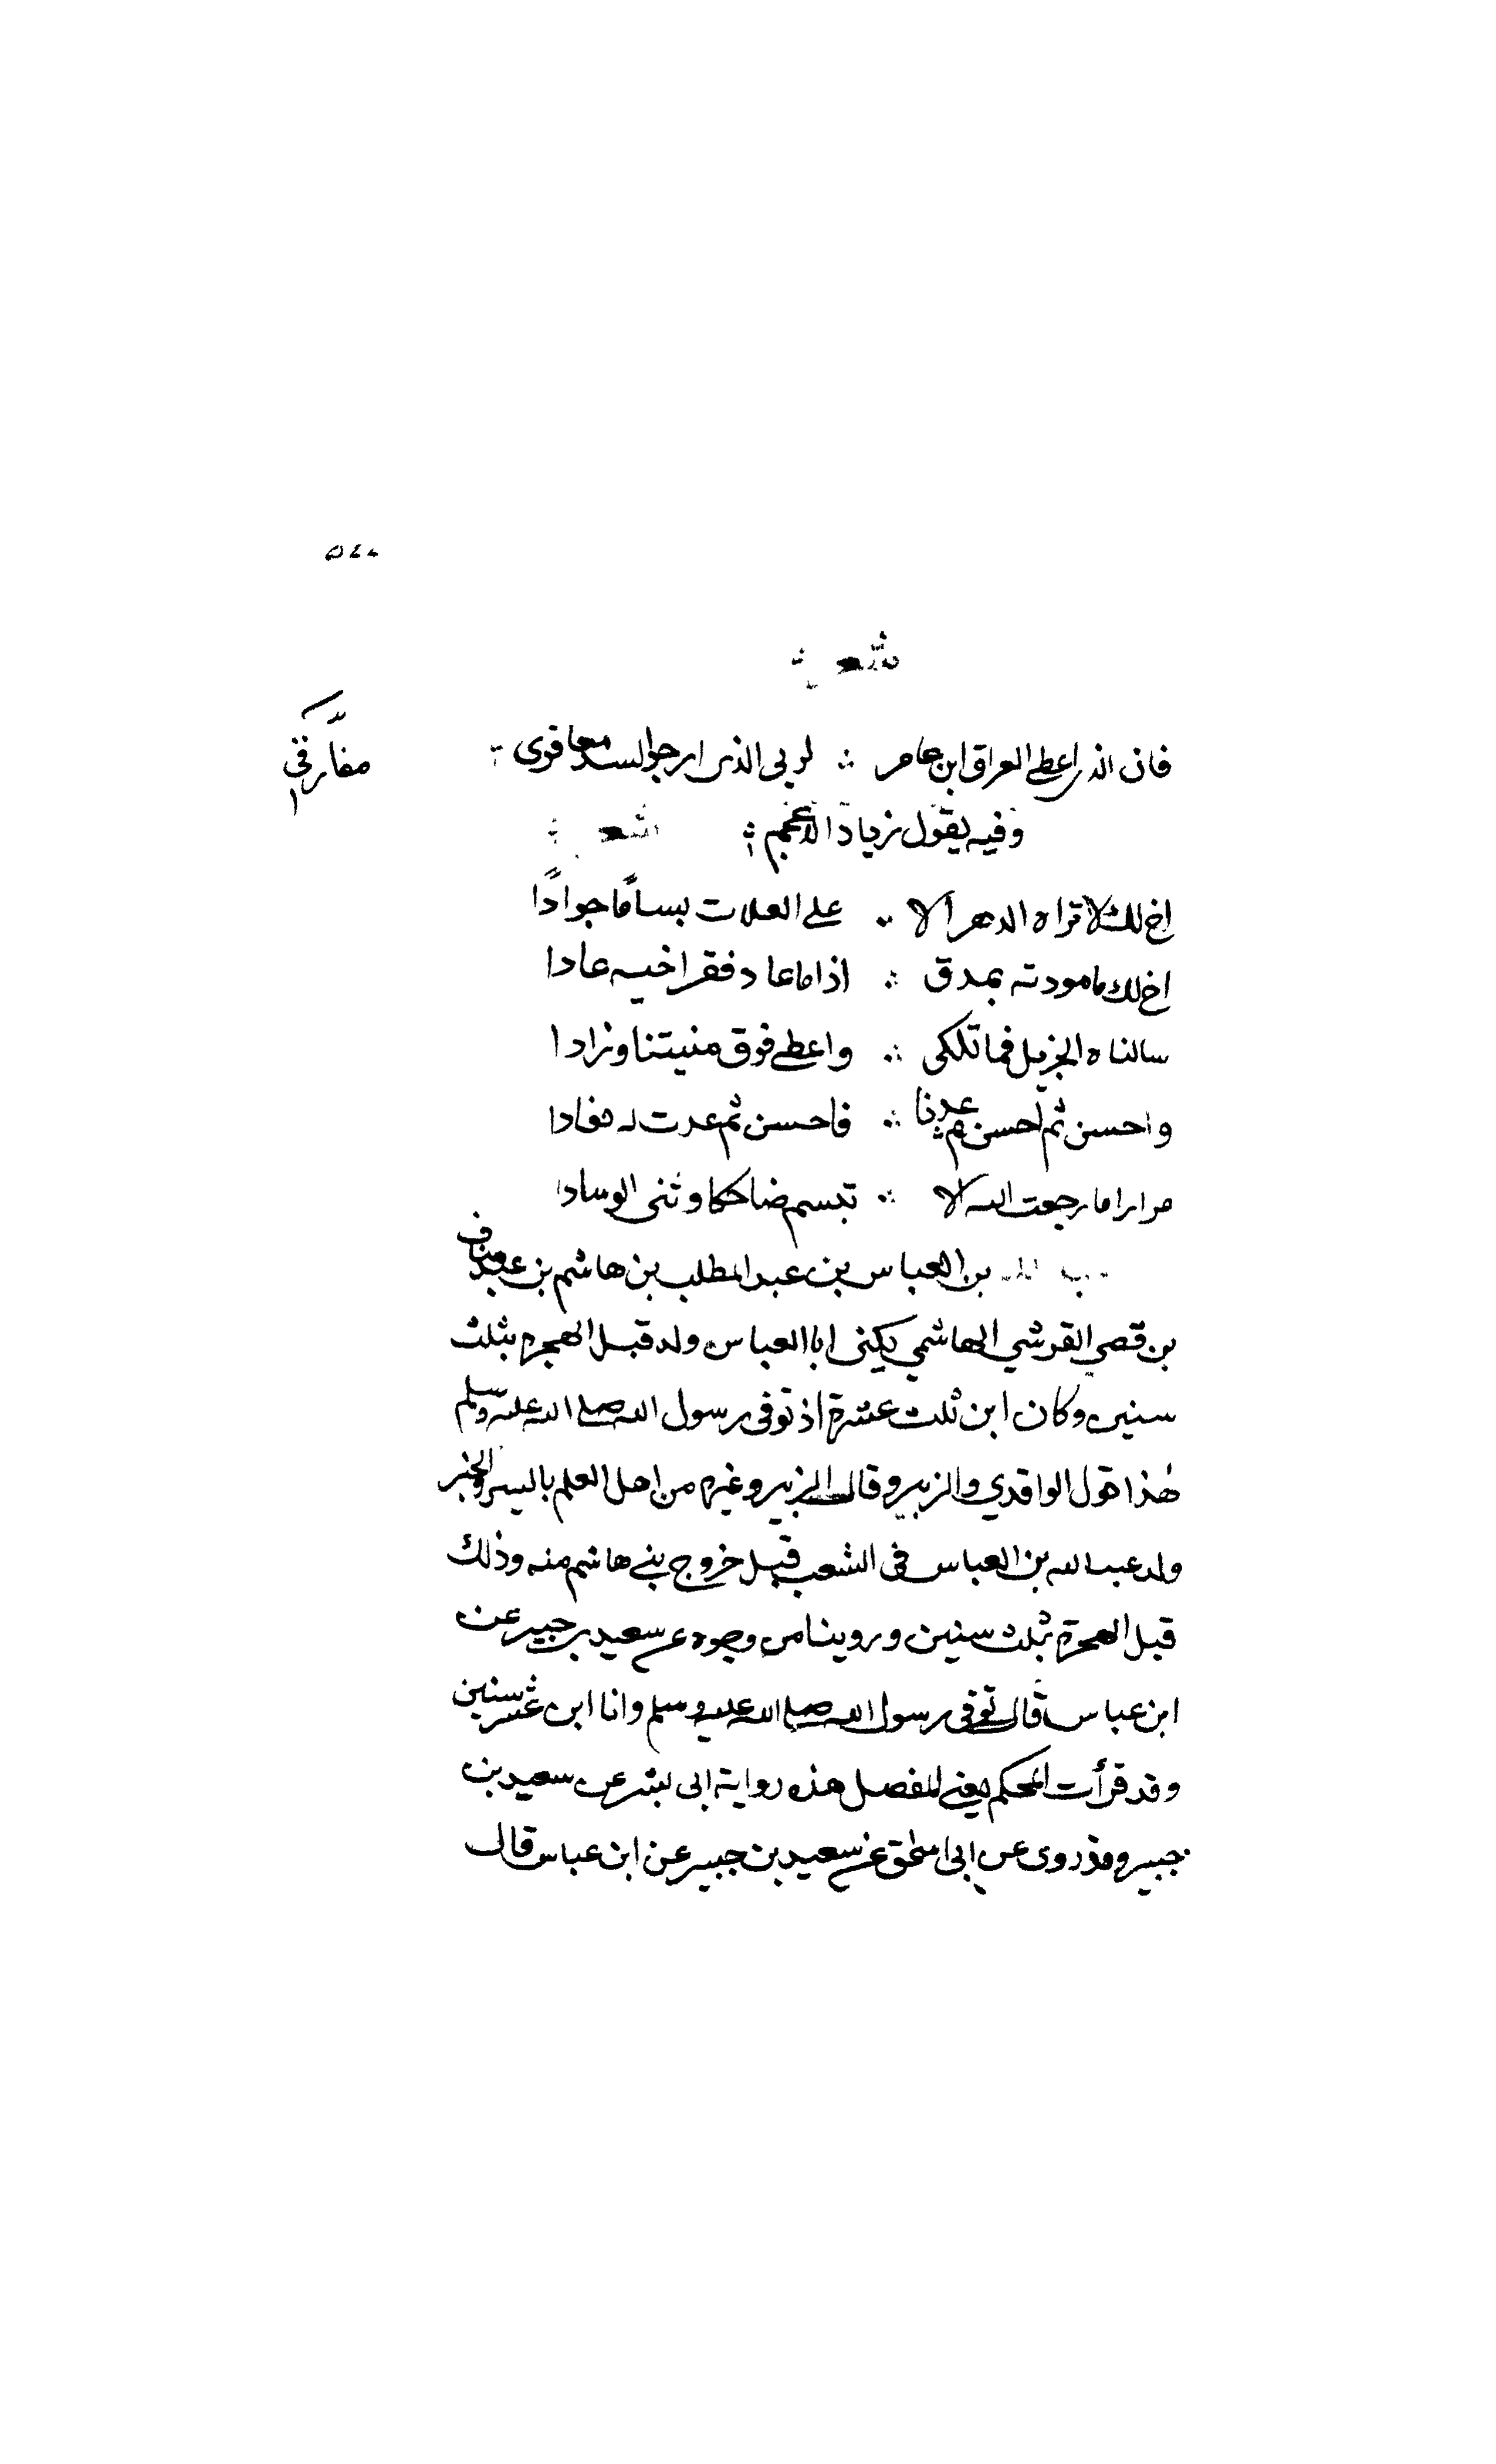 شعر
فان الذي اعطى العراق ابن عامر ؞ لربي الذي ارجو لسد مفاقرى
مفارقي
وفيه يقول زياد الاعجم ؞ شعر ؞
اخ لك لا تراه الدهر الا ؞ على العلات بساما جوادًا
اخ لك ما مودته بمدق ؞ اذا ما عاد فقر اخيه عادا
سالناه الجزيل فما تلكى ؞ واعطى فوق منيتنا وزادا
واحسن ثم احسن ثم عدنا ؞ فاحسن ثم عدت له فعادا
مرارا ما رجعت اليه الا ؞ تبسم ضاحكا وثنى الوسادا
بن العباس بن عبد المطلب بن هاشم بن عبد مناف
بن قصي القرشي الهاشمي يكنى ابا العباس ولد قبل الهجره بثلث
سنين وكان ابن ثلث عشرة اذ توفى رسول الله صلى الله عليه وسلم
هذا قول الواقدي والزبير وقال الزبير وغيره من اهل العلم بالسير والخبر
ولد عبد الله بن العباس فى الشعب قبل خروج بني هاشم منه وذلك
قبل الهجرة بثلث سنين وروينا من وجوه عن سعيد بن جبير عن
ابن عباس قال توفى رسول الله صلى الله عليه وسلم وانا ابن عشر سنين
وقد قرأت المحكم يعني المفصل هذه رواية ابى بشر عن سعيد بن
جبير وقد روى عن ابى اسحق عن سعيد بن جبير عن ابن عباس قال